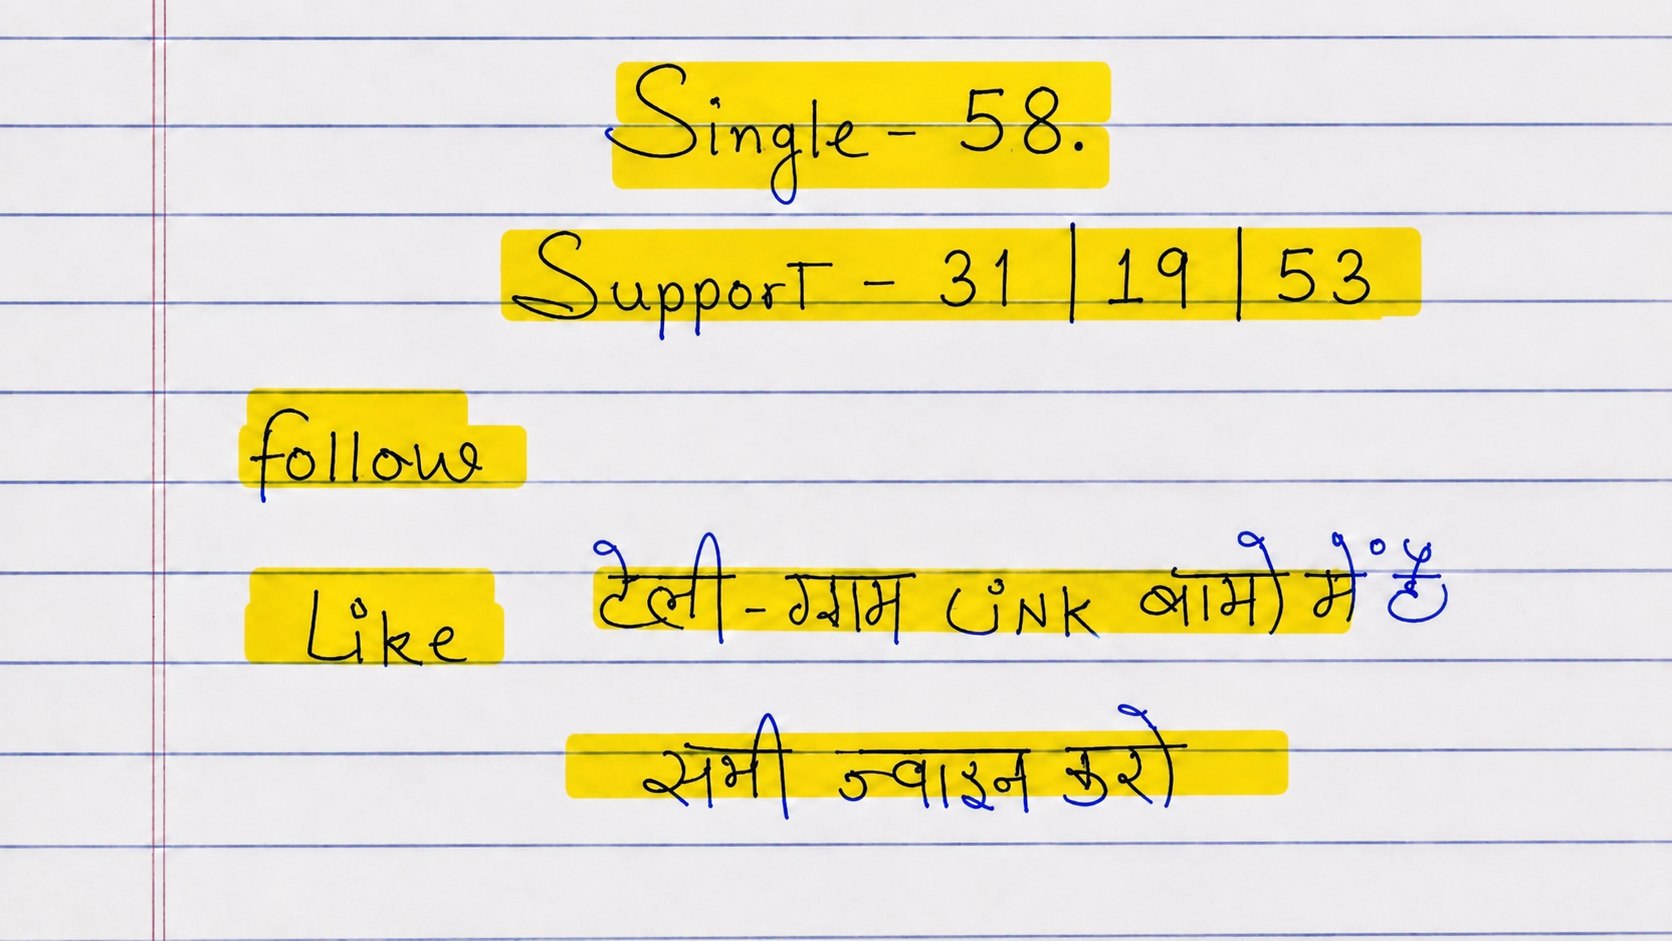 Single - 58.
Support - 31 | 19 | 53
follow
Like
टेली - ग्राम LiNK बायो में है
सभी ज्वाइन करो